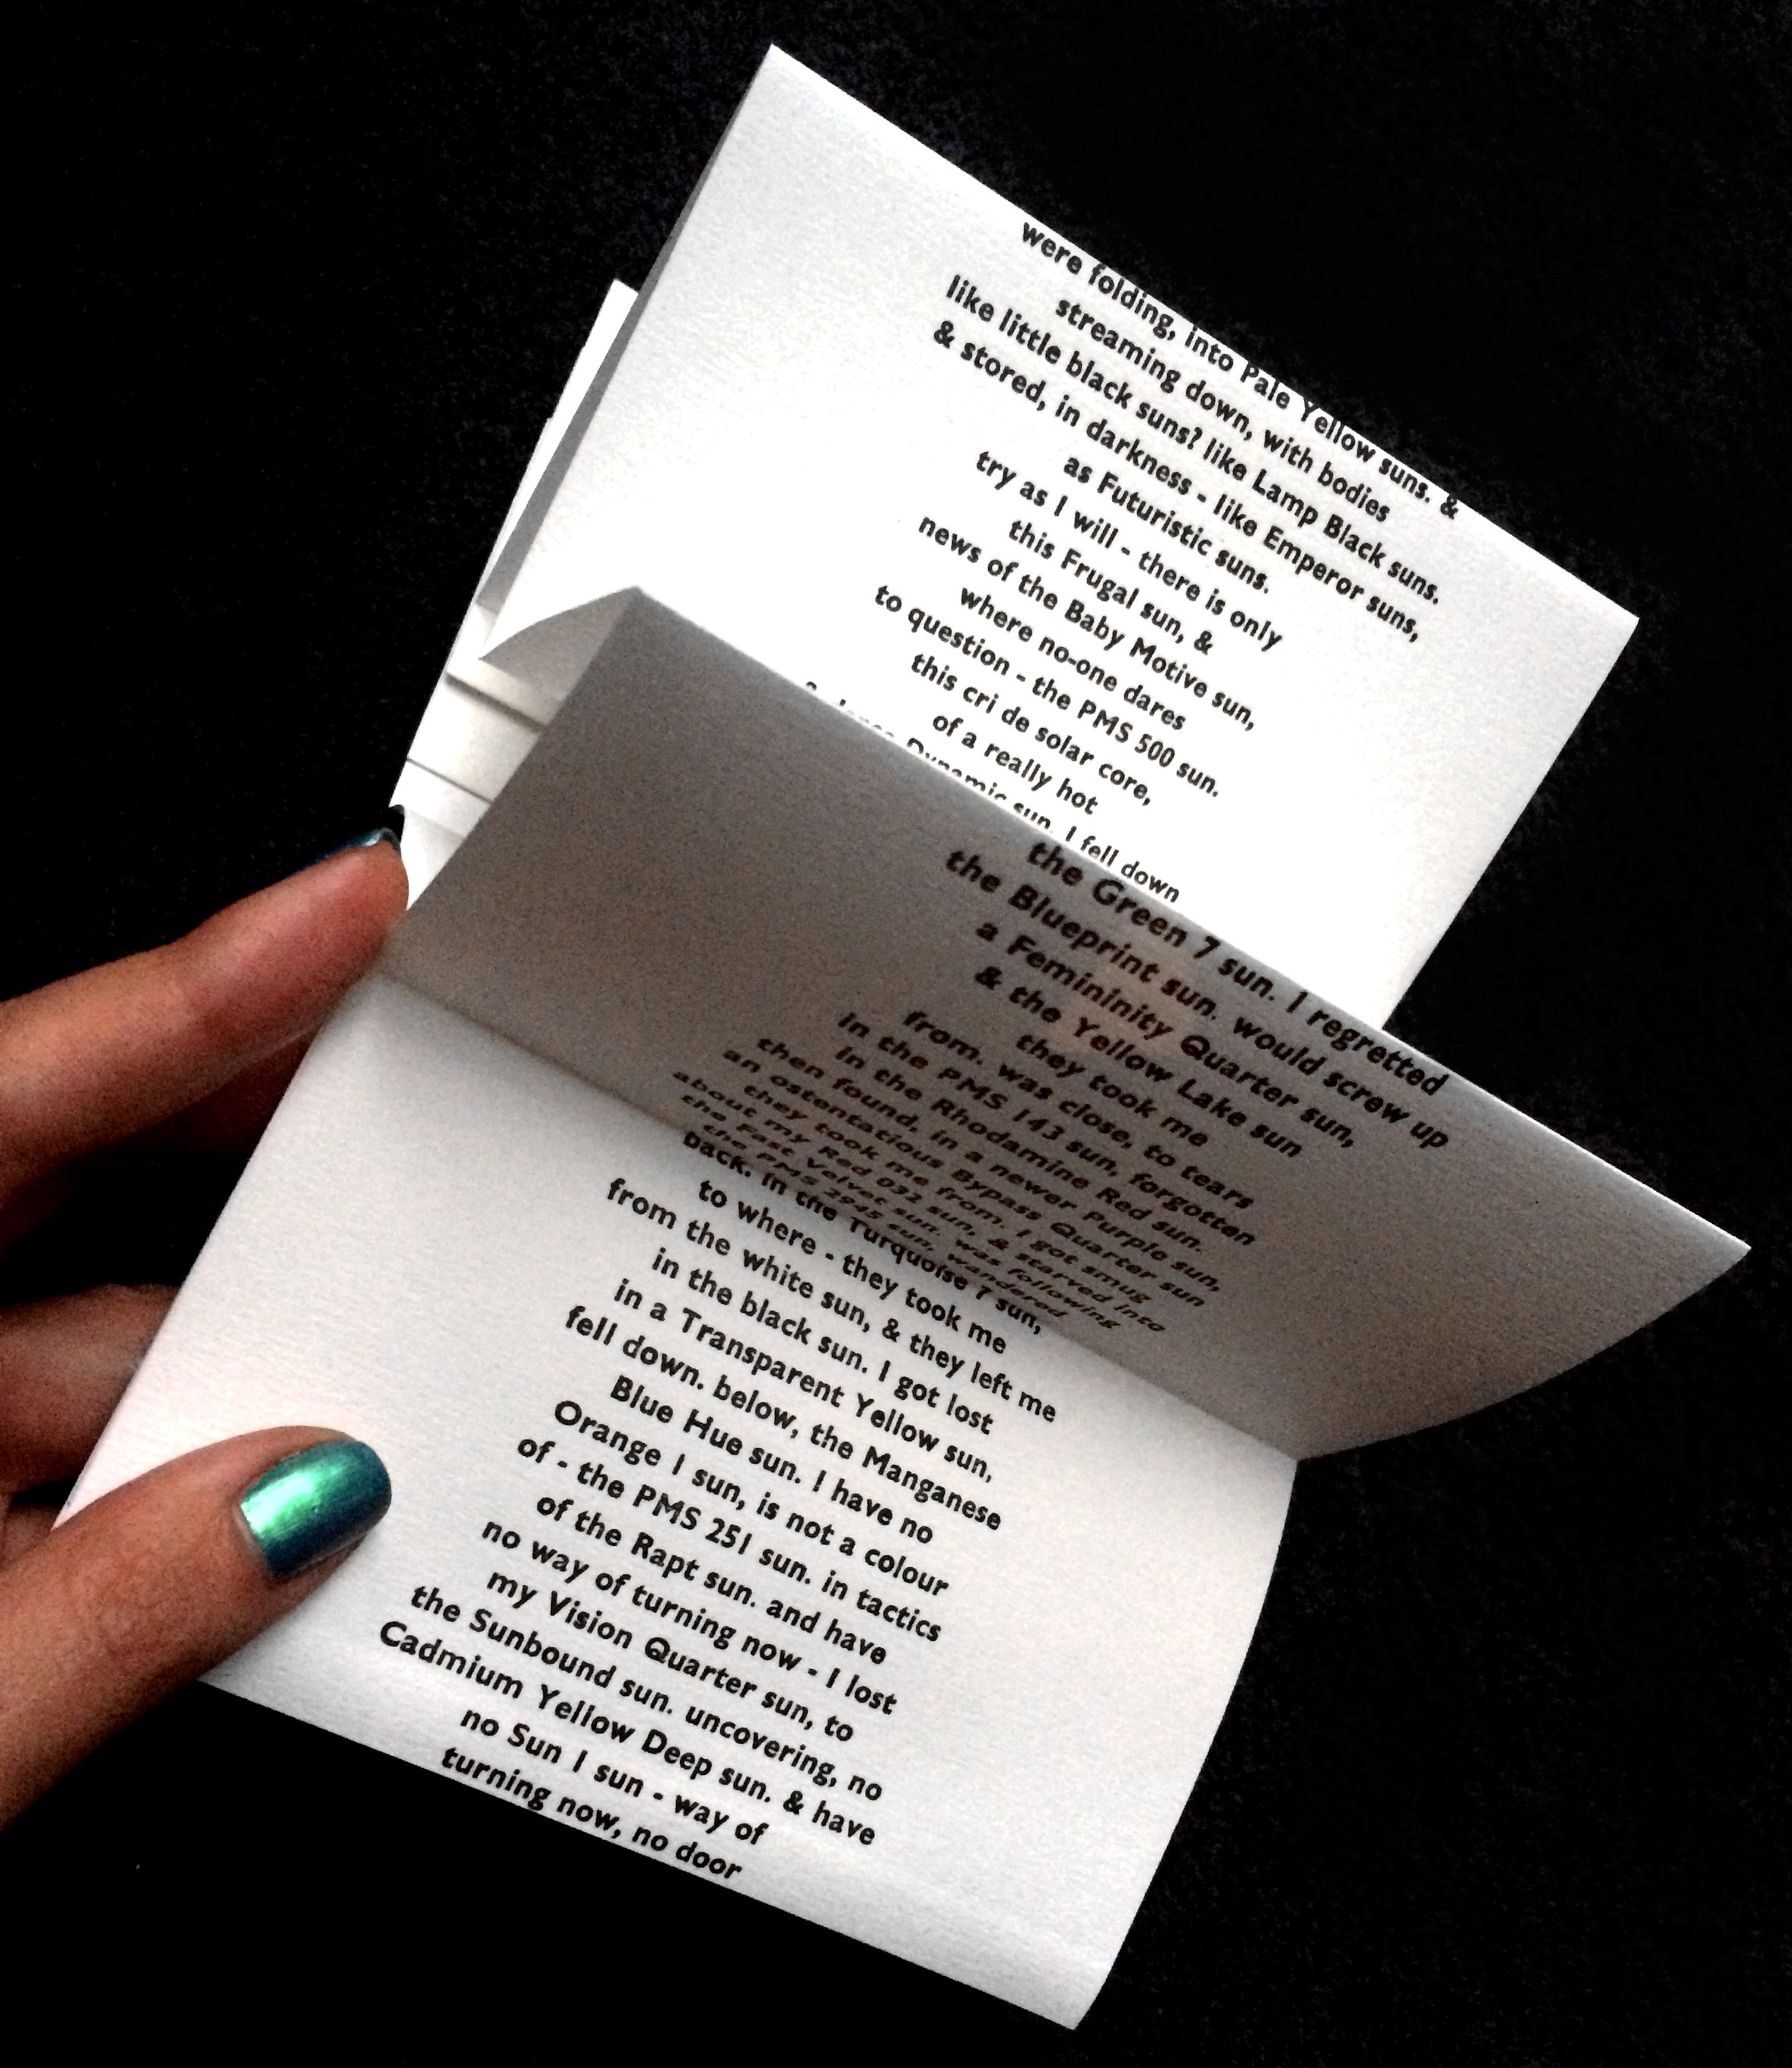 were folding, into Pale Yellow suns. &
streaming down, with bodies
like little black suns? like Lamp Black suns.
& stored, in darkness - like Emperor suns,
as Futuristic suns.
try as I will - there is only
this Frugal sun, &
news of the Baby Motive sun,
where no-one dares
to question - the PMS 500 sun.
this cri de solar core,
of a really hot
Dynamic sun. I fell down
the Green 7 sun. I regretted
the Blueprint sun. would screw up
a Femininity Quarter sun,
& the Yellow Lake sun
they took me
from. was close, to tears
in the PMS 143 sun, forgotten
in the Rhodamine Red sun.
then found, in a newer Purple sun,
an ostentatious Bypass Quarter sun
they took me from. I got smug
about my Red 032 sun, & starved into
the Fast Velvet sun. was following
the PMS 2945 sun, wandered
back. in the Turquoise 7 sun,
to where - they took me
from the white sun, & they left me
in the black sun. I got lost
in a Transparent Yellow sun,
fell down. below, the Manganese
Blue Hue sun. I have no
Orange 1 sun, is not a colour
of - the PMS 251 sun. in tactics
of the Rapt sun. and have
no way of turning now - I lost
my Vision Quarter sun, to
the Sunbound sun. uncovering, no
Cadmium Yellow Deep sun. & have
no Sun 1 sun - way of
turning now, no door